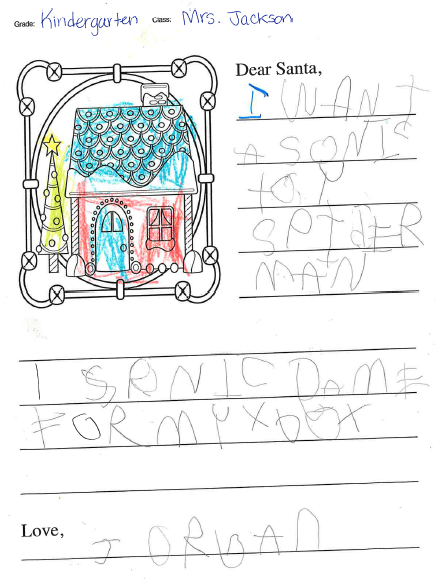 Grade: Kindergarten Class: Mrs. Jackson
Dear Santa,
I WANT
A SONIC
TOY
SPIDER
MAN
1 SRNIC DAME
FOR MY XBOX
Love,
JORDAN